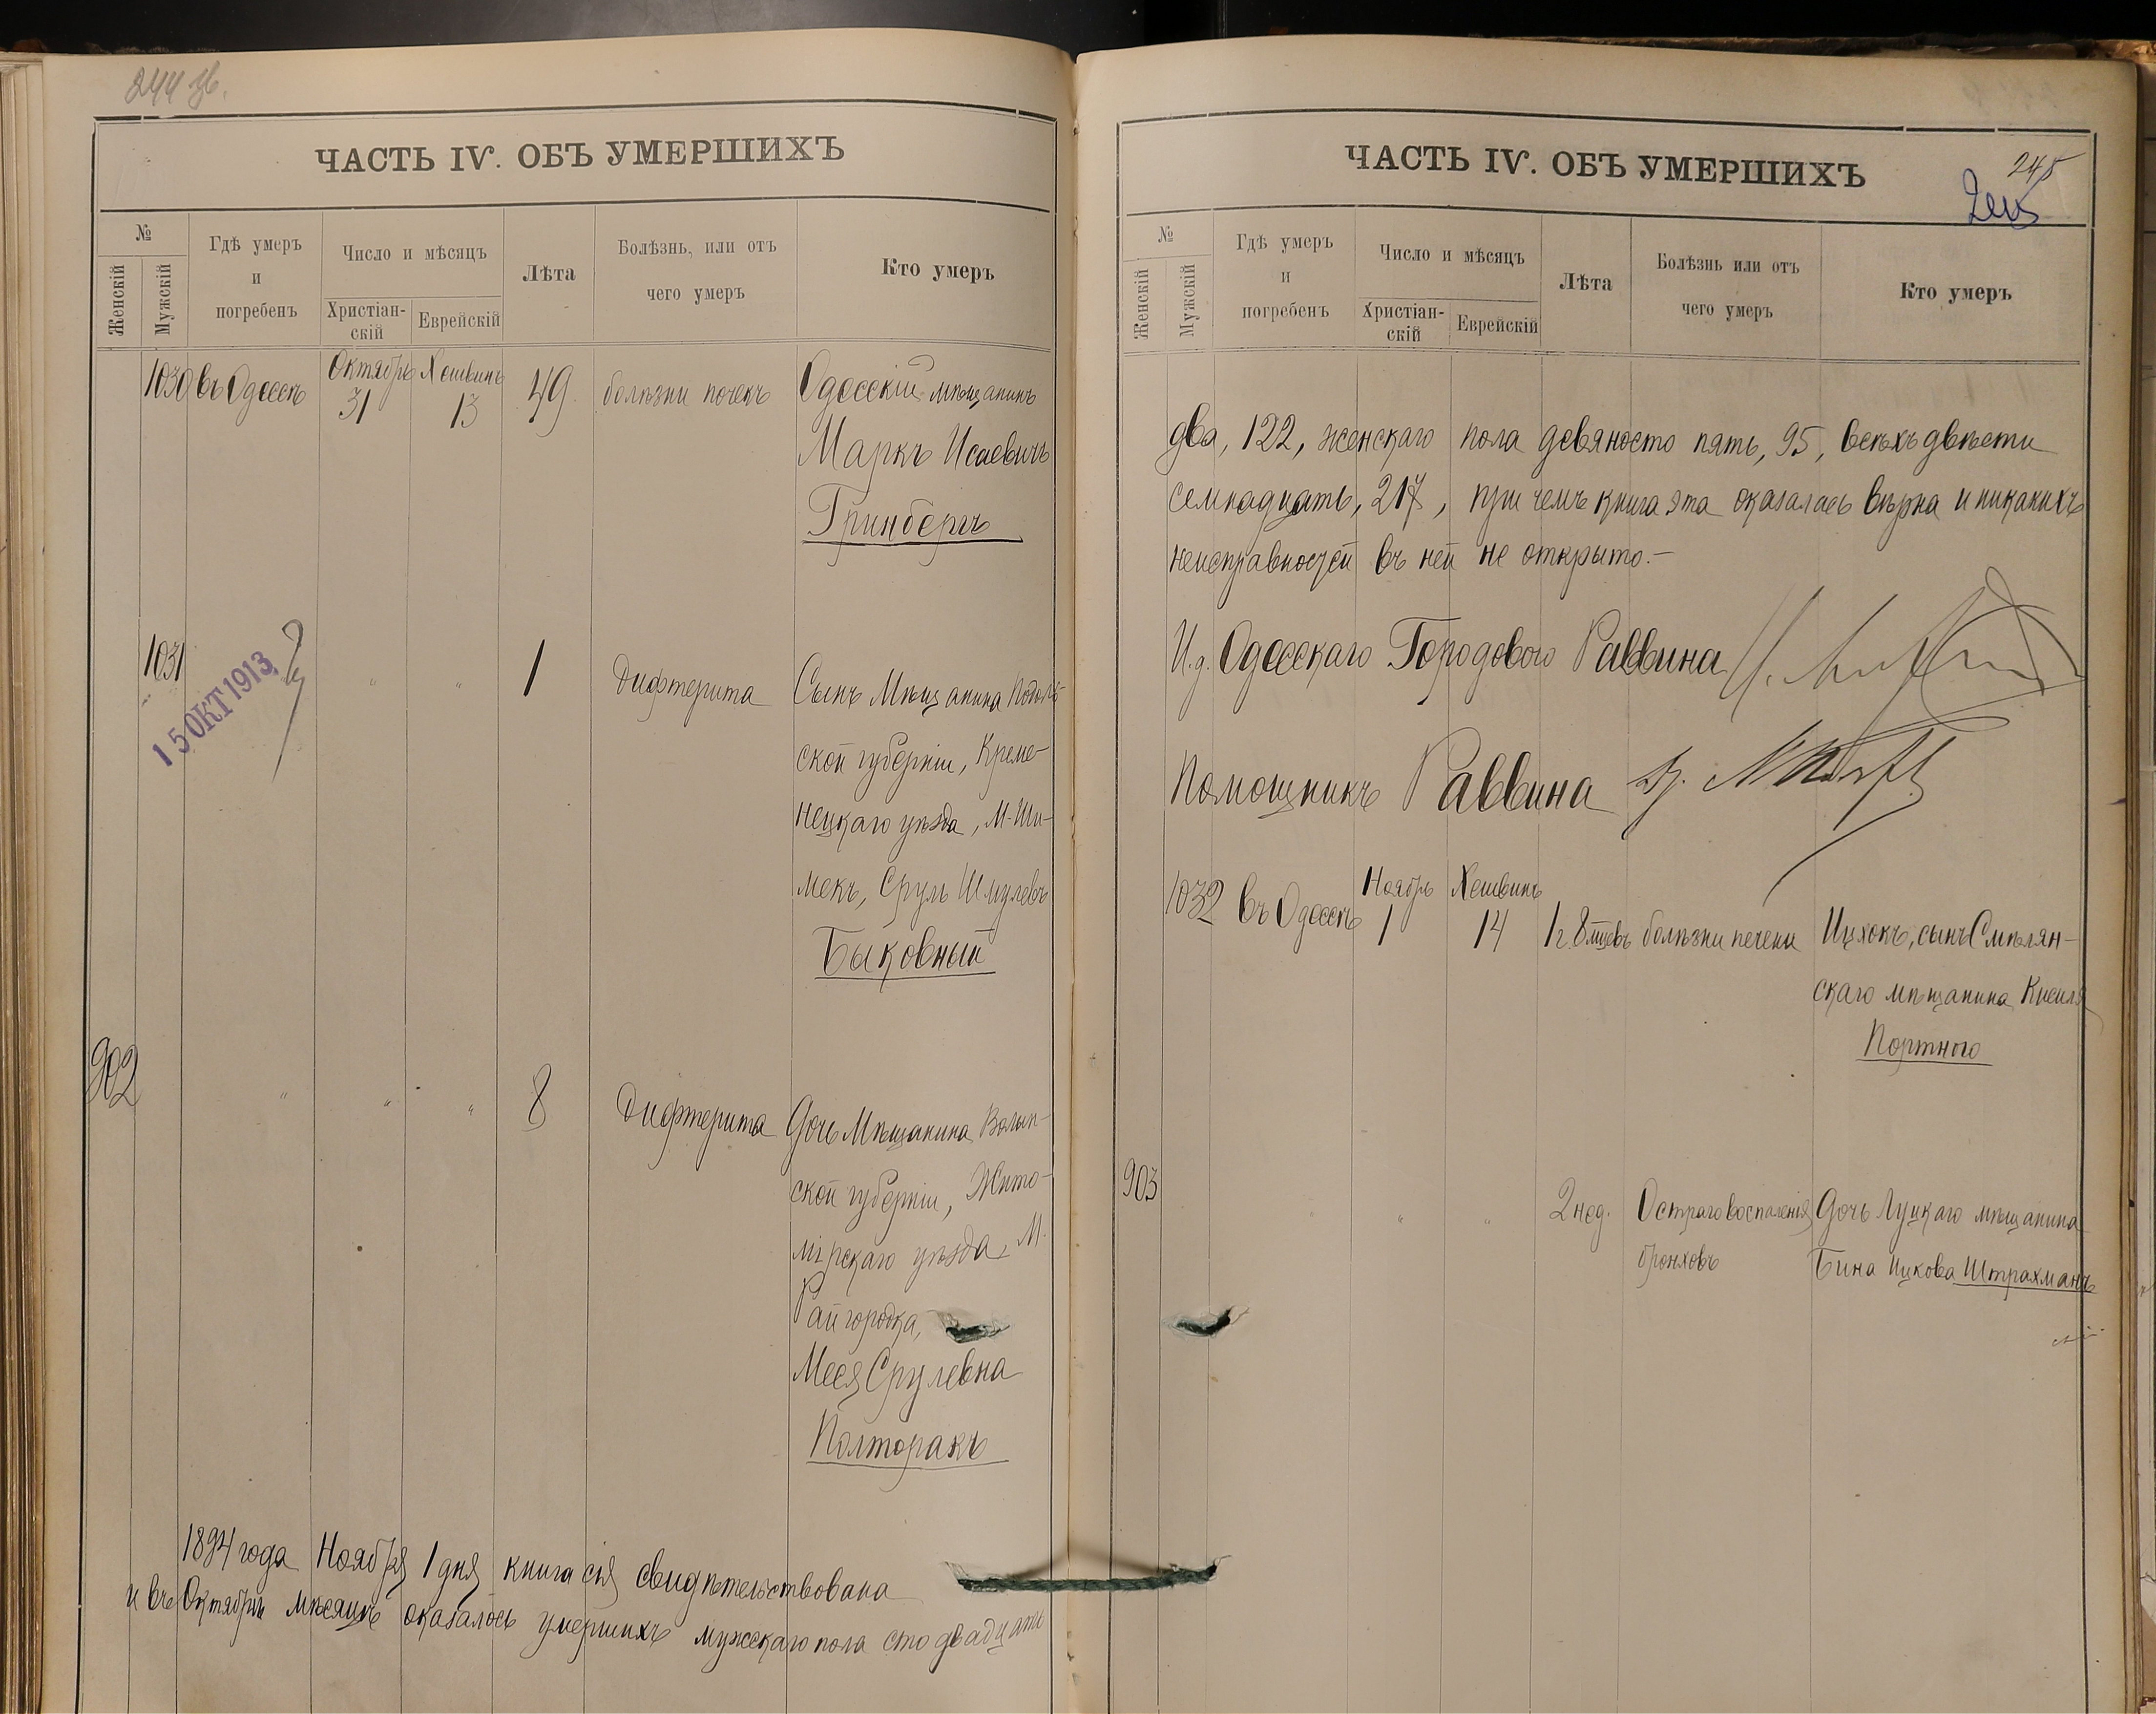 244 об.
ЧАСТЬ IV. ОБЪ УМЕРШИХЪ
№
Женскій
Мужскій
Гдѣ умеръ
и
погребенъ
Число и мѣсяцъ
Христіан-
скій
Еврейскій
Лѣта
Болѣзнь, или отъ
чего умеръ
Кто умеръ
1030 въ Одессѣ Октябрь 31 Хешвинъ 13 49 болѣзни почекъ Одесскій мѣщанинъ
Маркъ Исаевичъ
Гринбергъ
1031 " " 1 Дифтерита Сынъ Мѣщанина Подоль-
15 ОКТ 1913
ской губерніи, Креме-
нецкаго уѣзда, М. Шу-
мскъ, Сруль Шмулевъ
Быковный
902 " " " 8 Дифтерита Дочь Мѣщанина Волын-
ской губерніи, Жито-
мірскаго уѣзда, М.
Райгородка,
Меся Срулевна
Полторакъ
1894 года Ноября 1 дня книга сія свидѣтельствована
и въ Октябрѣ мѣсяцѣ оказалось умершихъ мужскаго пола сто двадцать
ЧАСТЬ IV. ОБЪ УМЕРШИХЪ
245
№
Женскій
Мужскій
Гдѣ умеръ
и
погребенъ
Число и мѣсяцъ
Христіан-
скій
Еврейскій
Лѣта
Болѣзнь или отъ
чего умеръ
Кто умеръ
два, 122, женскаго пола девяносто пять, 95, всѣхъ двѣсти
семнадцать, 217, при чемъ книга эта оказалась вѣрна и никакихъ
неисправностей въ ней не открыто.—
И.д. Одесскаго Городового Раввина
Помощникъ Раввина
1032 въ Одессѣ Ноябрь 1 Хешвинъ 14 1 г. 8 мцевъ болѣзни печени Ицхокъ, сынъ Смѣлян-
скаго мѣщанина Кисиля
Портного
903 " " " 2 нед. Остраго воспаленія Дочь Луцкаго мѣщанина
бронховъ Бина Ицкова Штрахманъ